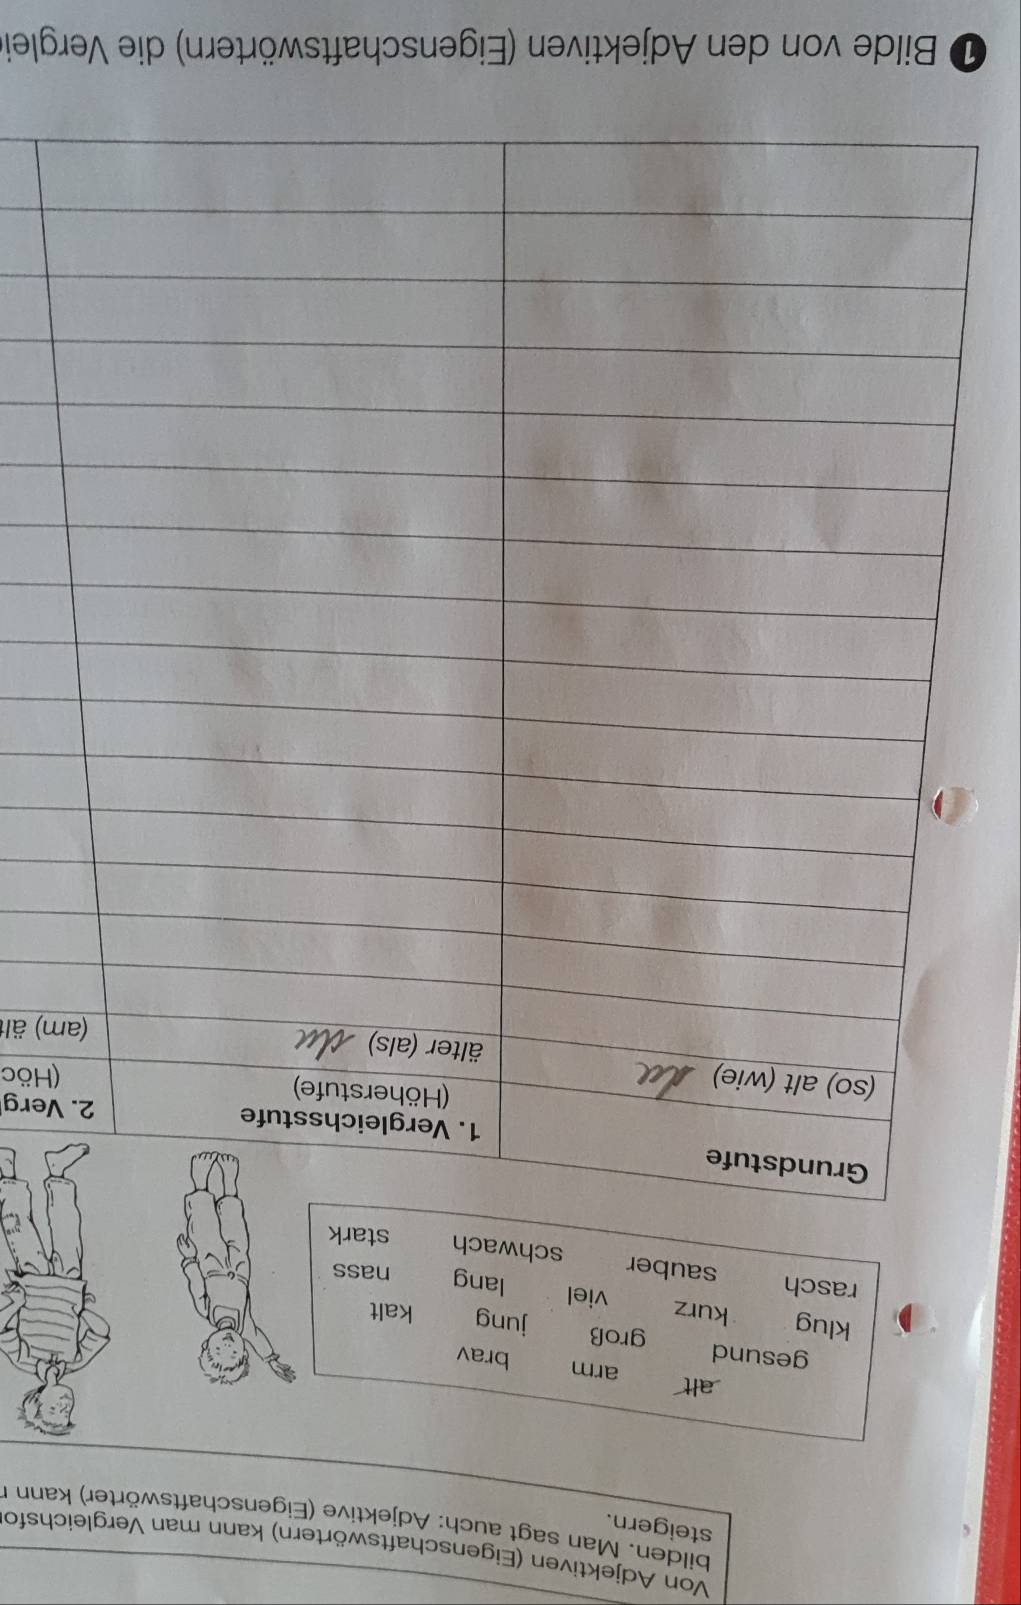 Von Adjektiven (Eigenschaftswörtern) kann man Vergleichsfo
bilden. Man sagt auch: Adjektive (Eigenschaftswörter) kann
steigern.
alt arm brav
gesund groß jung kalt
klug kurz viel lang nass
rasch sauber schwach stark
Grundstufe
1. Vergleichsstufe
(Höherstufe)
2. Vergl
(Höc
(so) alt (wie)
älter (als)
(am) ält
1 Bilde von den Adjektiven (Eigenschaftswörtern) die Verglei